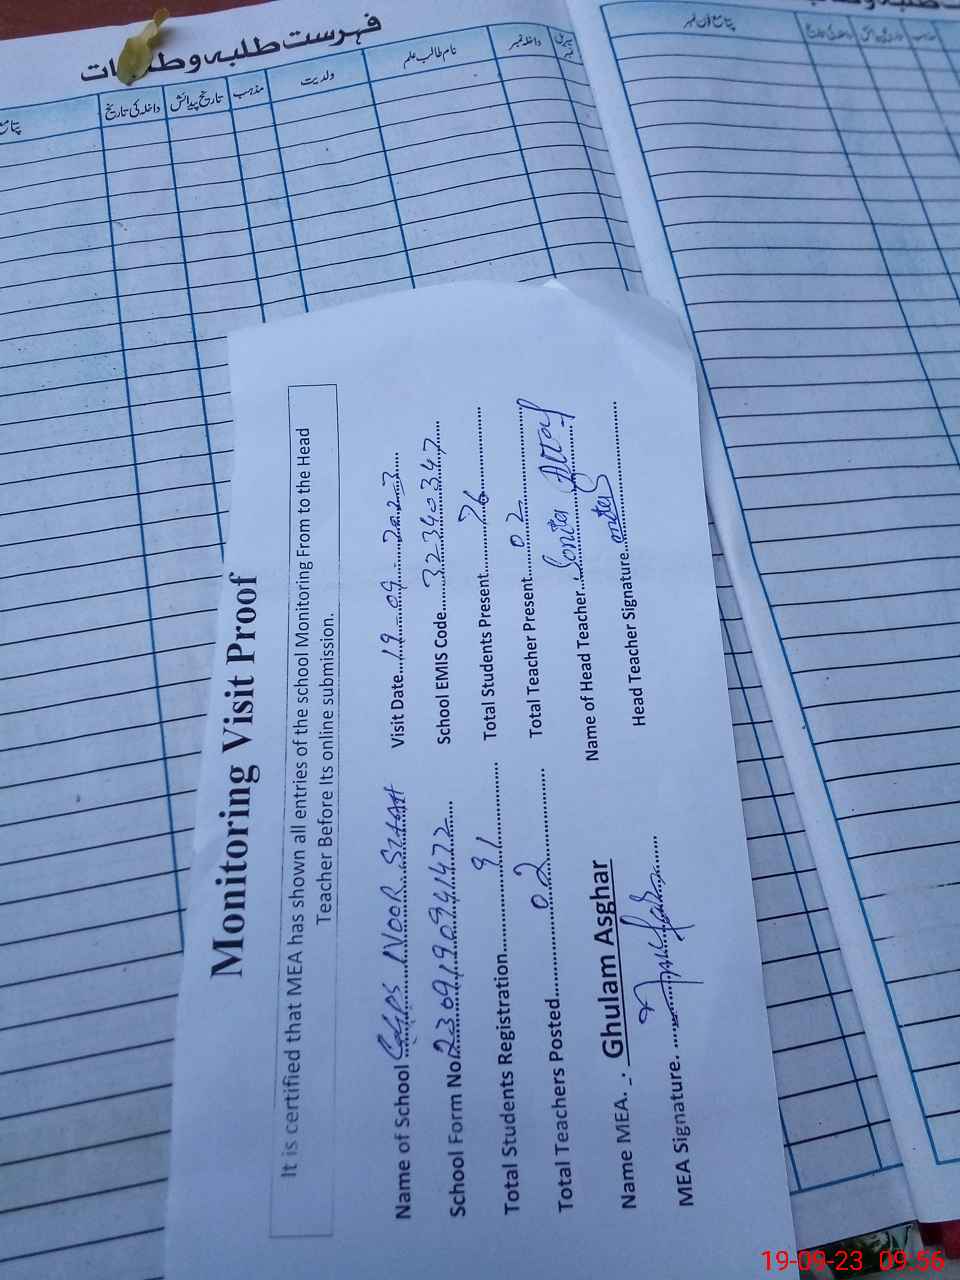 فہرست طلبہ و طالبات
داخلہ نمبر
نام طالب علم
ولدیت
مذہب
تاریخ پیدائش
داخلہ کی تاریخ
Monitoring Visit Proof
It is certified that MEA has shown all entries of the school Monitoring From to the Head
Teacher Before Its online submission.
Name of School GGPS NOOR SHAH Visit Date 19-09-2023
School Form No. 2309190941472 School EMIS Code 32340347
Total Students Registration 91 Total Students Present 76
Total Teachers Posted 02 Total Teacher Present 02
Name MEA. _. Ghulam Asghar Name of Head Teacher Sonita
MEA Signature. Head Teacher Signature
19-09-23 09:56